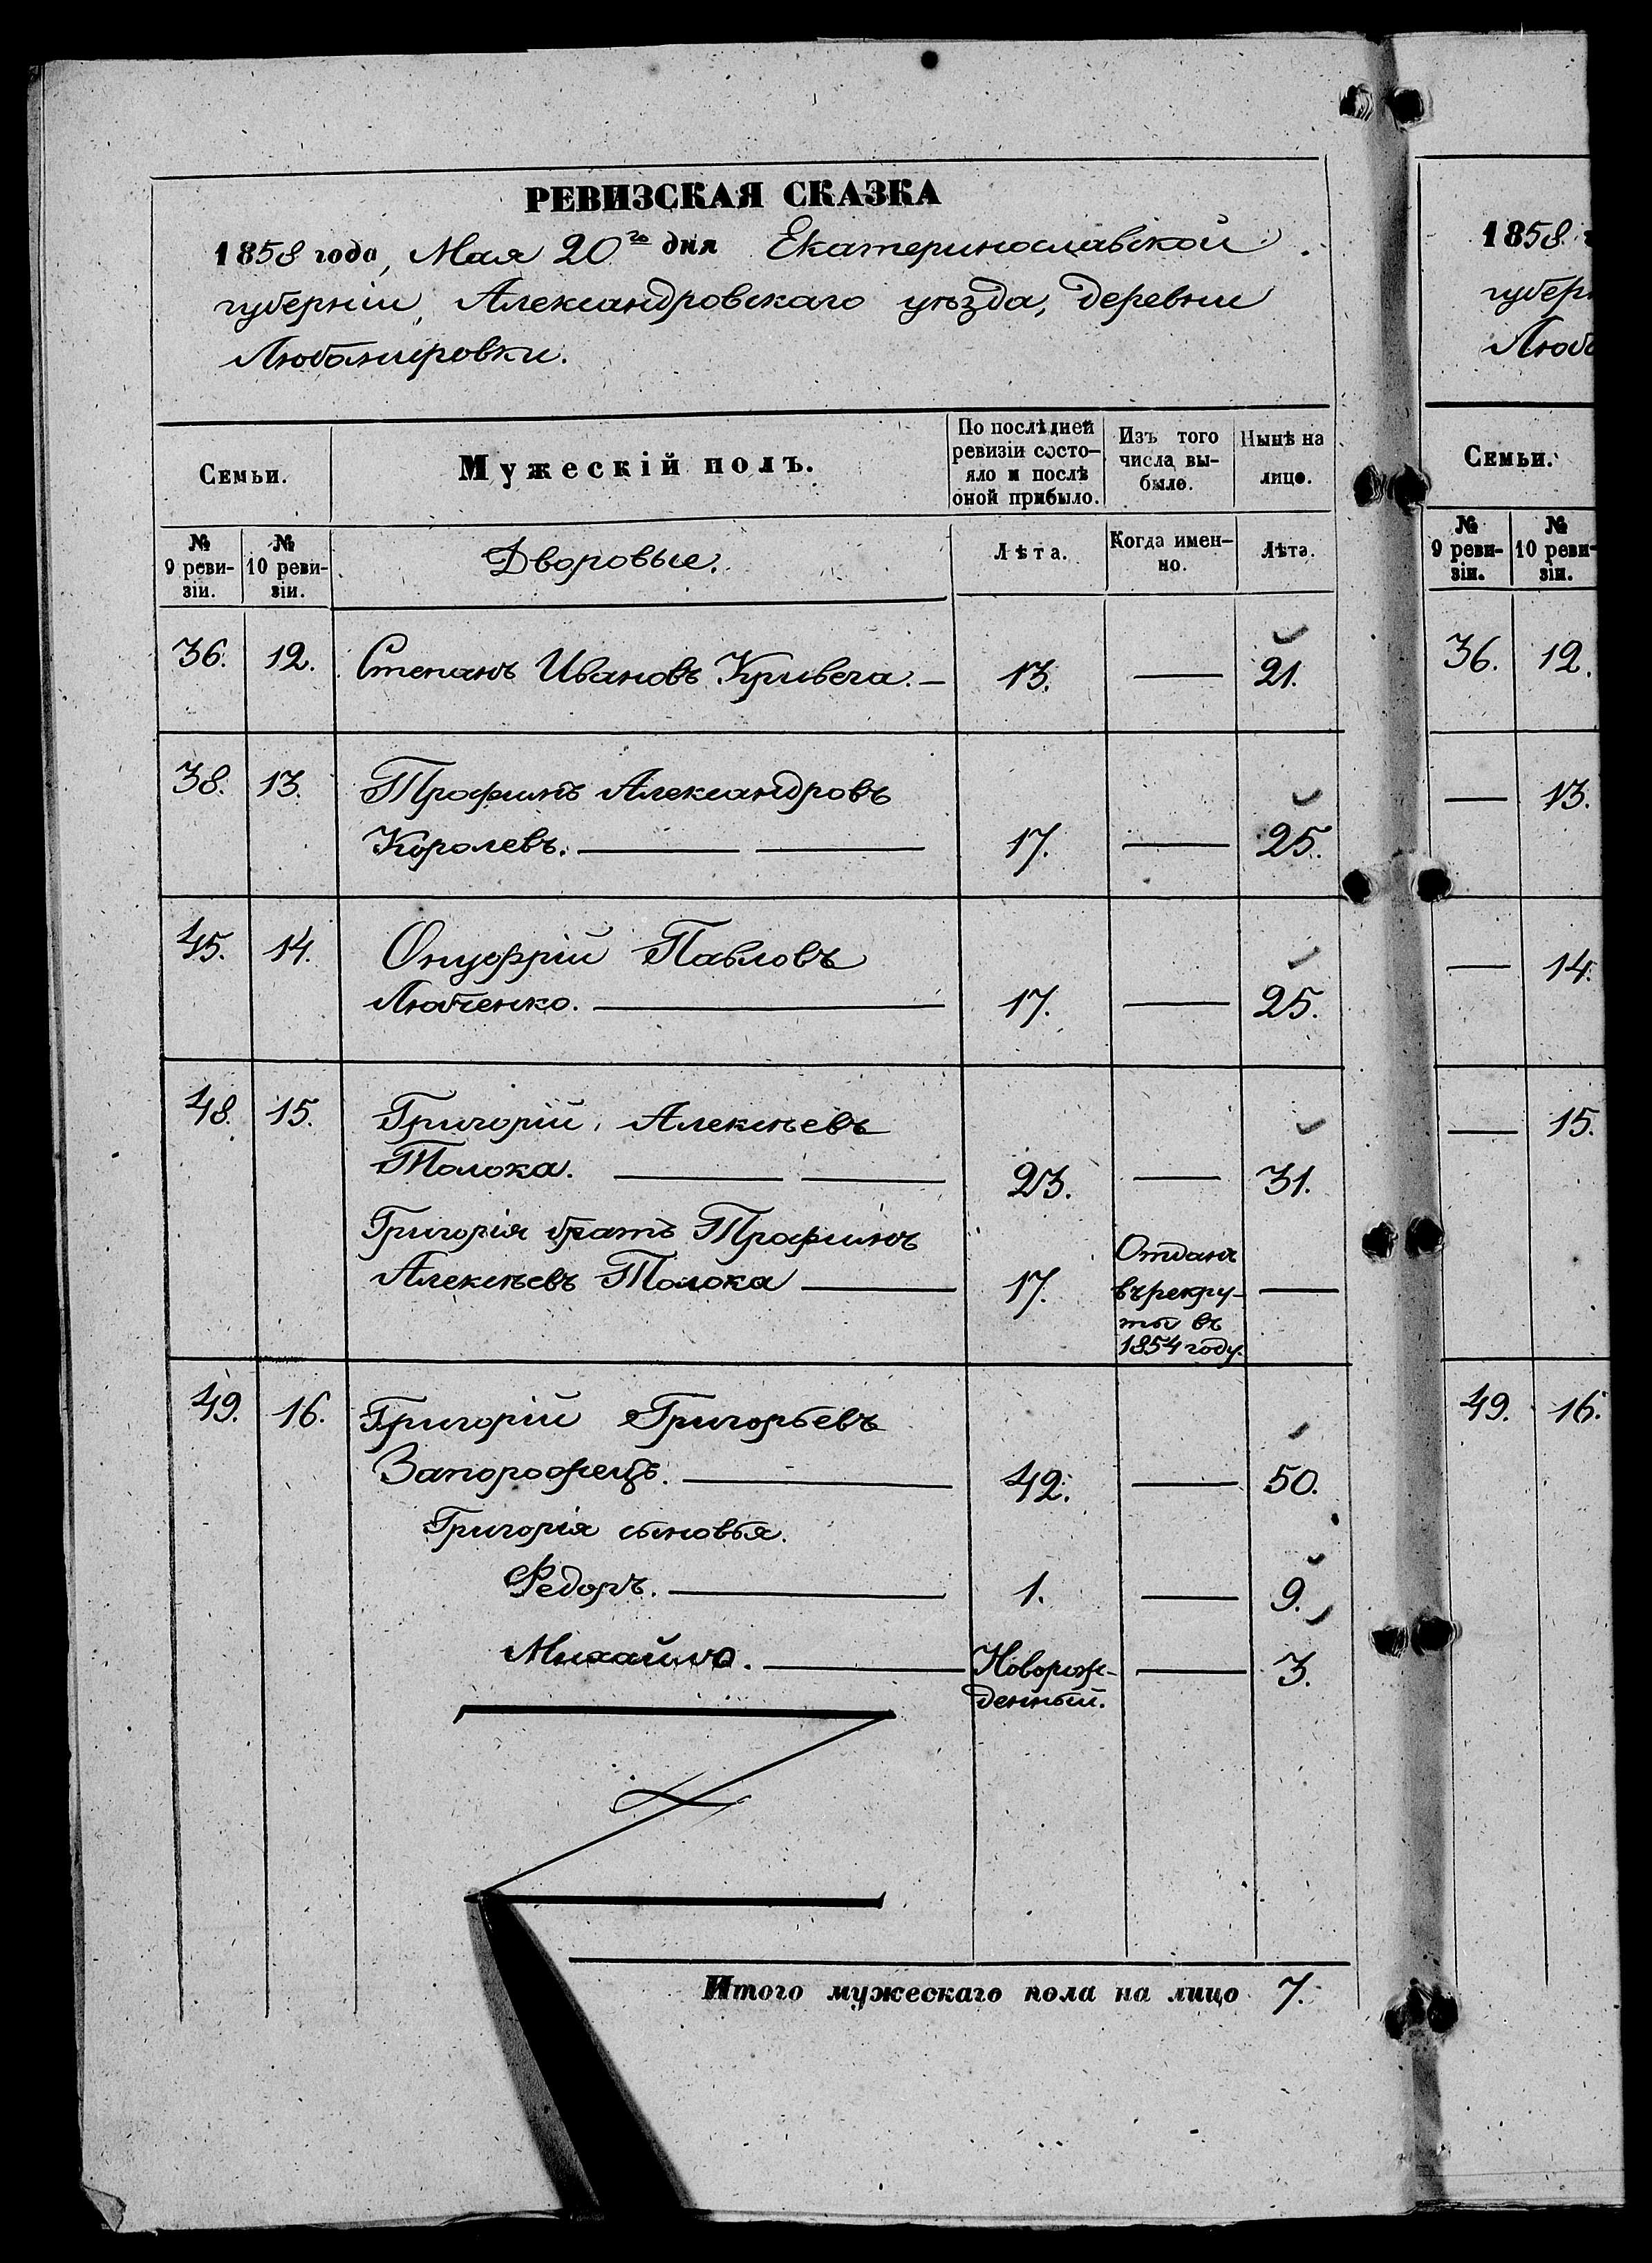 РЕВИЗСКАЯ СКАЗКА
1858 года, Мая 20го дня Екатеринославской
губерніи, Александровскаго уѣзда, деревни
Любомировки.
Семьи.
Мужескій полъ.
По послѣдней
ревизіи состо-
яло и послѣ
оной прибыло.
Изъ того
числа вы-
было.
Нынѣ на
лицо.
№
9 реви-
зіи.
№
10 реви-
зіи.
Дворовые.
Лѣта.
Когда имен-
но.
Лѣта.
36. 12. Степанъ Ивановъ Кривега. — 13. — 21.
38. 13. Трофимъ Александровъ
Королевъ. — — 17. — 25.
45. 14. Онуфрій Павловъ
Любченко. — 17. — 25.
48. 15. Григорій Алексѣевъ
Толока. — — 23. — 31.
Григорія братъ Трофимъ
Алексѣевъ Толока — 17. —
Отданъ
въ рекру-
ты въ
1854 году.
49. 16. Григорій Григорьевъ
Запорожецъ. — 42. — 50.
Григорія сыновья.
Федоръ. — 1. — 9.
Михайло. — Новорож-
денный. — 3.
Итого мужескаго пола на лицо 7.
1858
губерн
Любо
Семьи.
№
9 реви-
зіи.
№
10 реви-
зіи.
36. 12.
— 13.
— 14.
— 15.
49. 16.